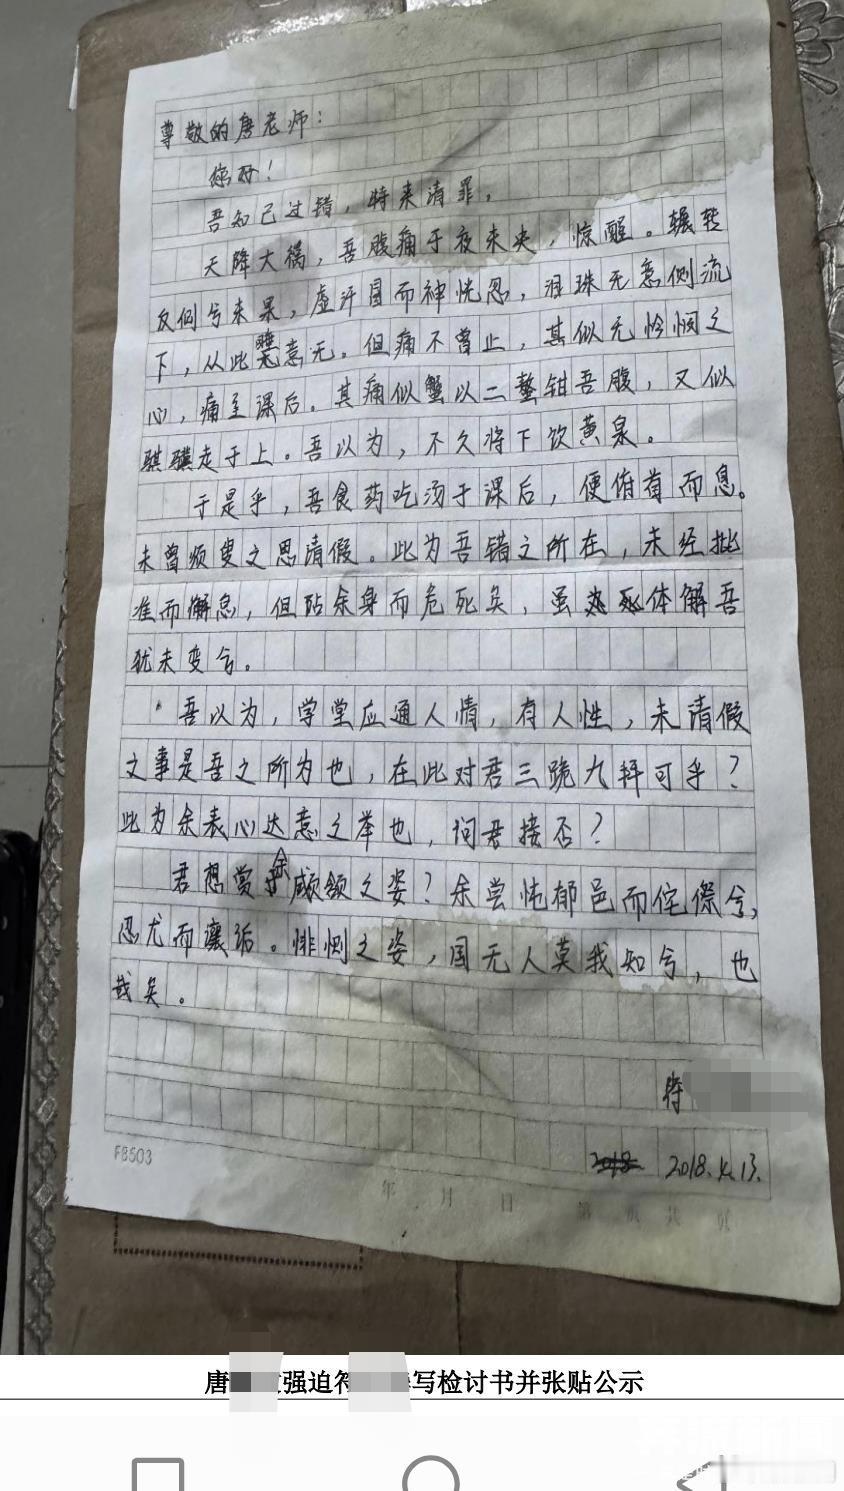 尊敬的唐老师：
您好！
吾知己过错，特来请罪，
天降大祸，吾腹痛于夜未央，惊醒。辗转
反侧兮未果，虚汗冒而神恍忽，泪珠无意侧流
下，从此意无。但痛不曾止，其似无怜悯之
心，痛至课后。其痛似蟹以二螯钳吾腹，又似
骐骥走于上。吾以为，不久将下饮黄泉。
于是乎，吾食药吃汤于课后，便俯首而息。
未曾须臾之思请假。此为吾错之所在，未经批
准而懈怠，但阽余身而危死矣，虽体解吾
犹未变兮。
吾以为，学堂应通人情，有人性，未请假
之事是吾之所为也，在此对君三跪九拜可乎？
此为余表心达意之举也，问君接否？
君想赏余顑颔之姿？余尝忳郁邑而侘傺兮，
忍尤而攘诟。悱恻之姿，国无人莫我知兮，也
哉矣。
2018 2018.4.13.
F8503
年 月 日 第 页 共 页
唐强迫符写检讨书并张贴公示